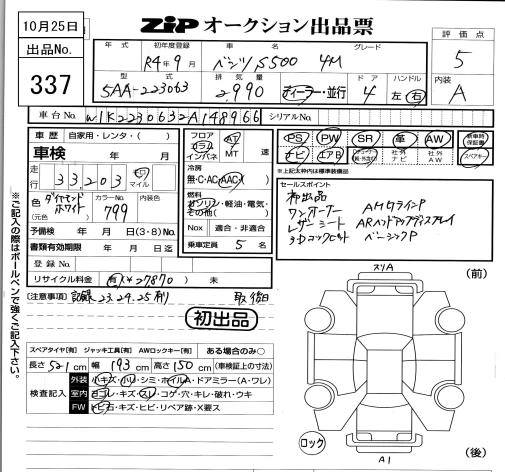 10月25日
ZIP オークション出品票
出品No.
337
年式 初年度登録 車名 グレード
R4年9月 ベンツS500 4M
評価点
5
型式 排気量 ドア ハンドル
5AA-223063 2990 ディーラー・並行 4 左 右
内装
A
車台No. W1K2230632A148966 シリアルNo.
車歴 自家用・レンタ・( )
車検 年 月
走行 33,203 km マイル
色 ダイヤモンドホワイト (元色) カラーNo. 799 内装色
予備検 年 月 日(3・8)No.
書類有効期限 年 月 日
登録No.
リサイクル料金 有(¥27870) 未
フロア コラム インパネ AT MT 速
冷房 無・C・AC・AAC
燃料 ガソリン・軽油・電気・その他( )
Nox 適合・非適合
乗車定員 5 名
PS PW SR 革 AW 新車時保証書
ナビ エアB 社外ナビ 社外AW スペアキー
※上記太枠内は標準装備品
セールスポイント
初出品
ワンオーナー AMGラインP
レザーシート ARヘッドアップディスプレイ
3Dコックピット ベーシックP
[注意事項] 記録 23.24.25有り 取説有
初出品
スペアタイヤ[有] ジャッキ工具[有] AWロックキー[有] ある場合のみ○
長さ 521 cm 幅 193 cm 高さ 150 cm (車検証上の寸法)
検査記入
外装 小キズ・小凹・シミ・ホイルA・ドアミラー(A・ワレ)
室内 ヨゴレ・キズ・スレ・コゲ・穴・キレ・破れ・ウキ
FW トビ石・キズ・ヒビ・リペア跡・X要ス
※ご記入の際はボールペンで強くご記入下さい。
スリA
(前)
ロック
A1
(後)